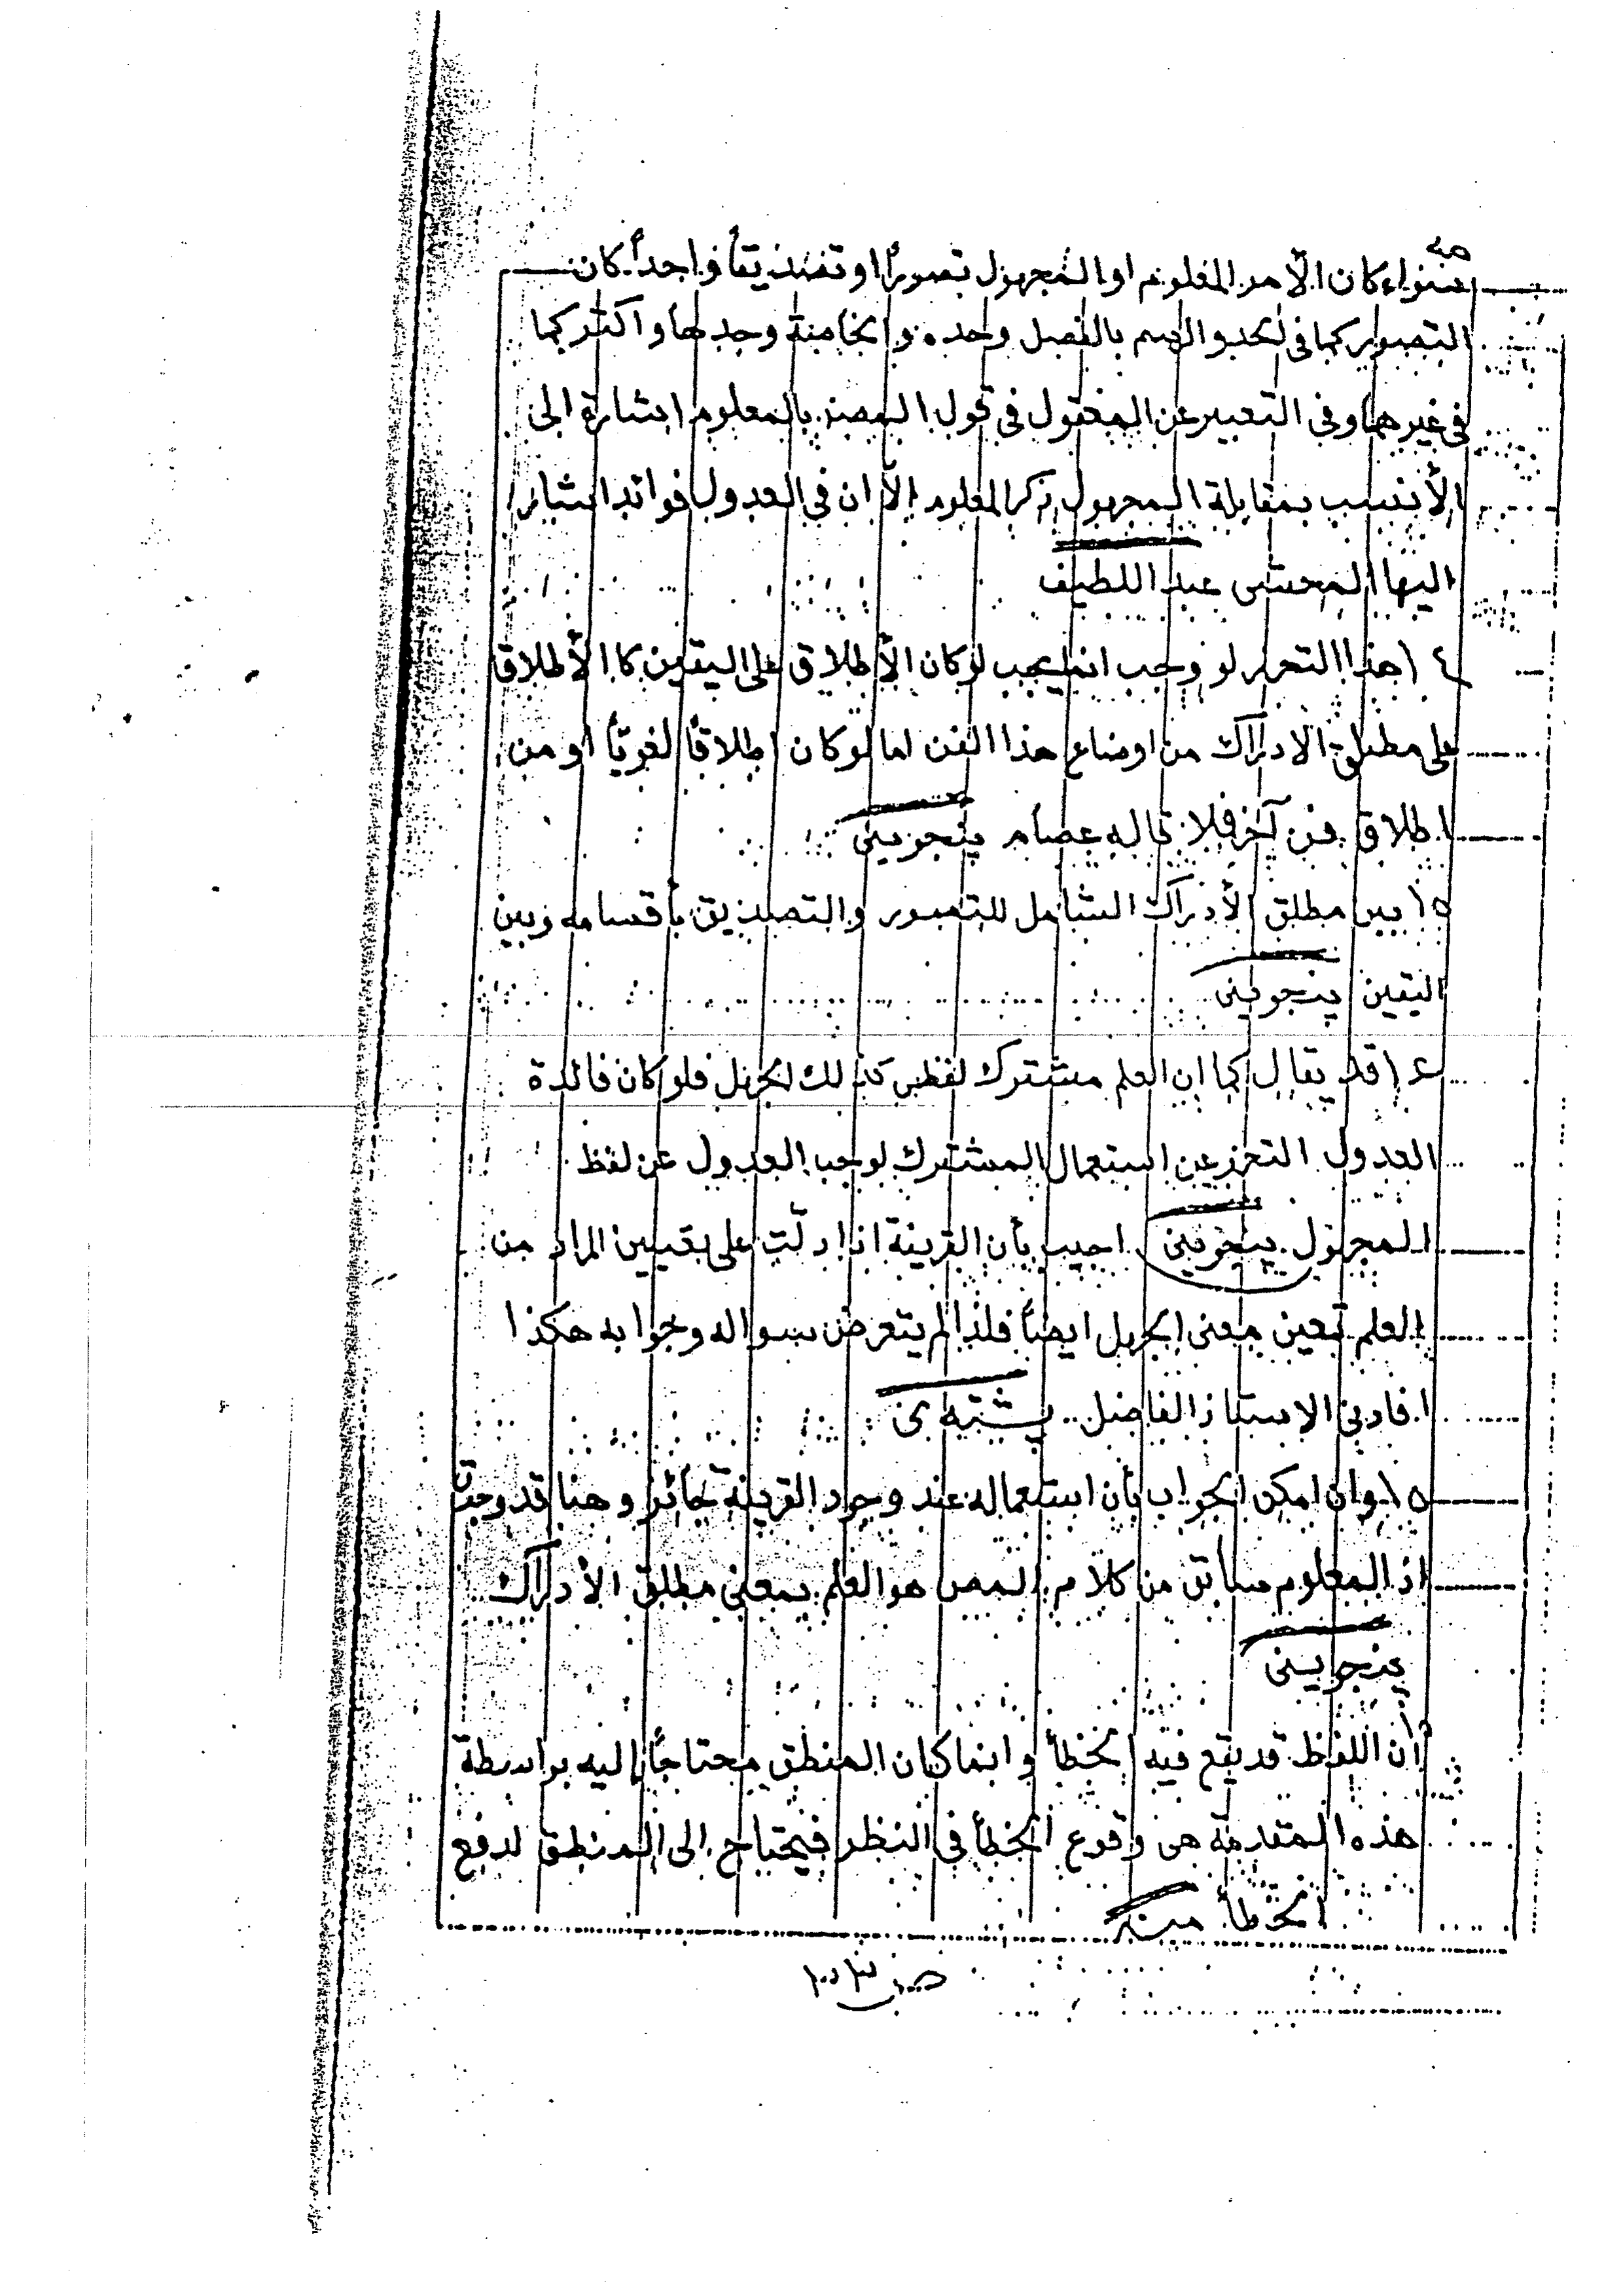 سواء كان الأمر المعلوم او المجهول تصورًا او تصديقاً واحداً كان
التصور كما فى الحد والرسم بالفصل وحده والخاصة وحدها واكثر كما
فى غيرهما وفى التعبير عن المعقول فى قول المصنـ بالمعلوم اشارة الى
الأنسب بمقابلة المجهول ذكر المعلوم إلاّ ان فى العدول فوائد اشار
اليها المحشى عبد اللطيف
١٤ هذا التحرير لو وجب انما يجب لو كان الأطلاق على اليقين كا الأطلاق
على مطلق الادراك من اوضاع هذا الفن اما لو كان اطلاقاً لغويّاً او من
اطلاق فن آخر فلا قاله عصام ينجوينى
١٥ بين مطلق الأدراك الشامل للتصور والتصديق بأقسامه وبين
اليقين ينجوينى
١٤ قد يقال كما ان العلم مشترك لفظى كذلك الجهل فلو كان فائدة
العدول التحرز عن استعمال المشترك لوجب العدول عن لفظ
المجهول ينجوينى اجيب بأن القرينة اذا دلّت على تعيين المراد من
العلم تعين معنى الجهل ايضاً فلذا لم يتعرض سواله وجوابه هكذا
افادنى الاستاذ الفاضل
١٥ وان امكن الجواب بأن استعماله عند وجود القرينة جائز وهنا قد وجدت
اذ المعلوم سابق من كلام المص هو العلم بمعنى مطلق الأدراك
ينجوينى
أن اللفظ قد يقع فيه الخطأ وانما كان المنطق محتاجاً إليه بواسطة
هذه المقدمة هى وقوع الخطأ فى النظر فيحتاج الى المنطق لدفع
الخطأ